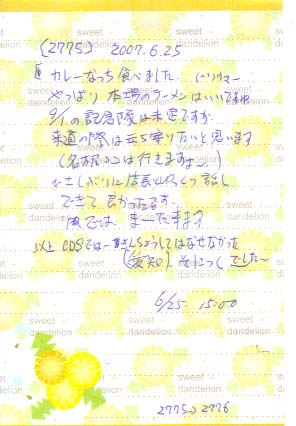 〔2775〕 2007.6.25
sweet dandelion
カレーなっち食べました (ハウマー
やっぱり 本場のラーメンはいいですね
9/1の記念隊は未定ですが
来道の際は立ち寄りたいと思います
(名古屋 には行きますよー)
ひさしぶりに店長とゆっくり話し
できて 良かったです。
では、また来ます
以上 CDSでは一番さんしょうしてはなせなかった
(愛知) そにっく でした〜
6/25 15:00
sweet dandelion
2775→2776